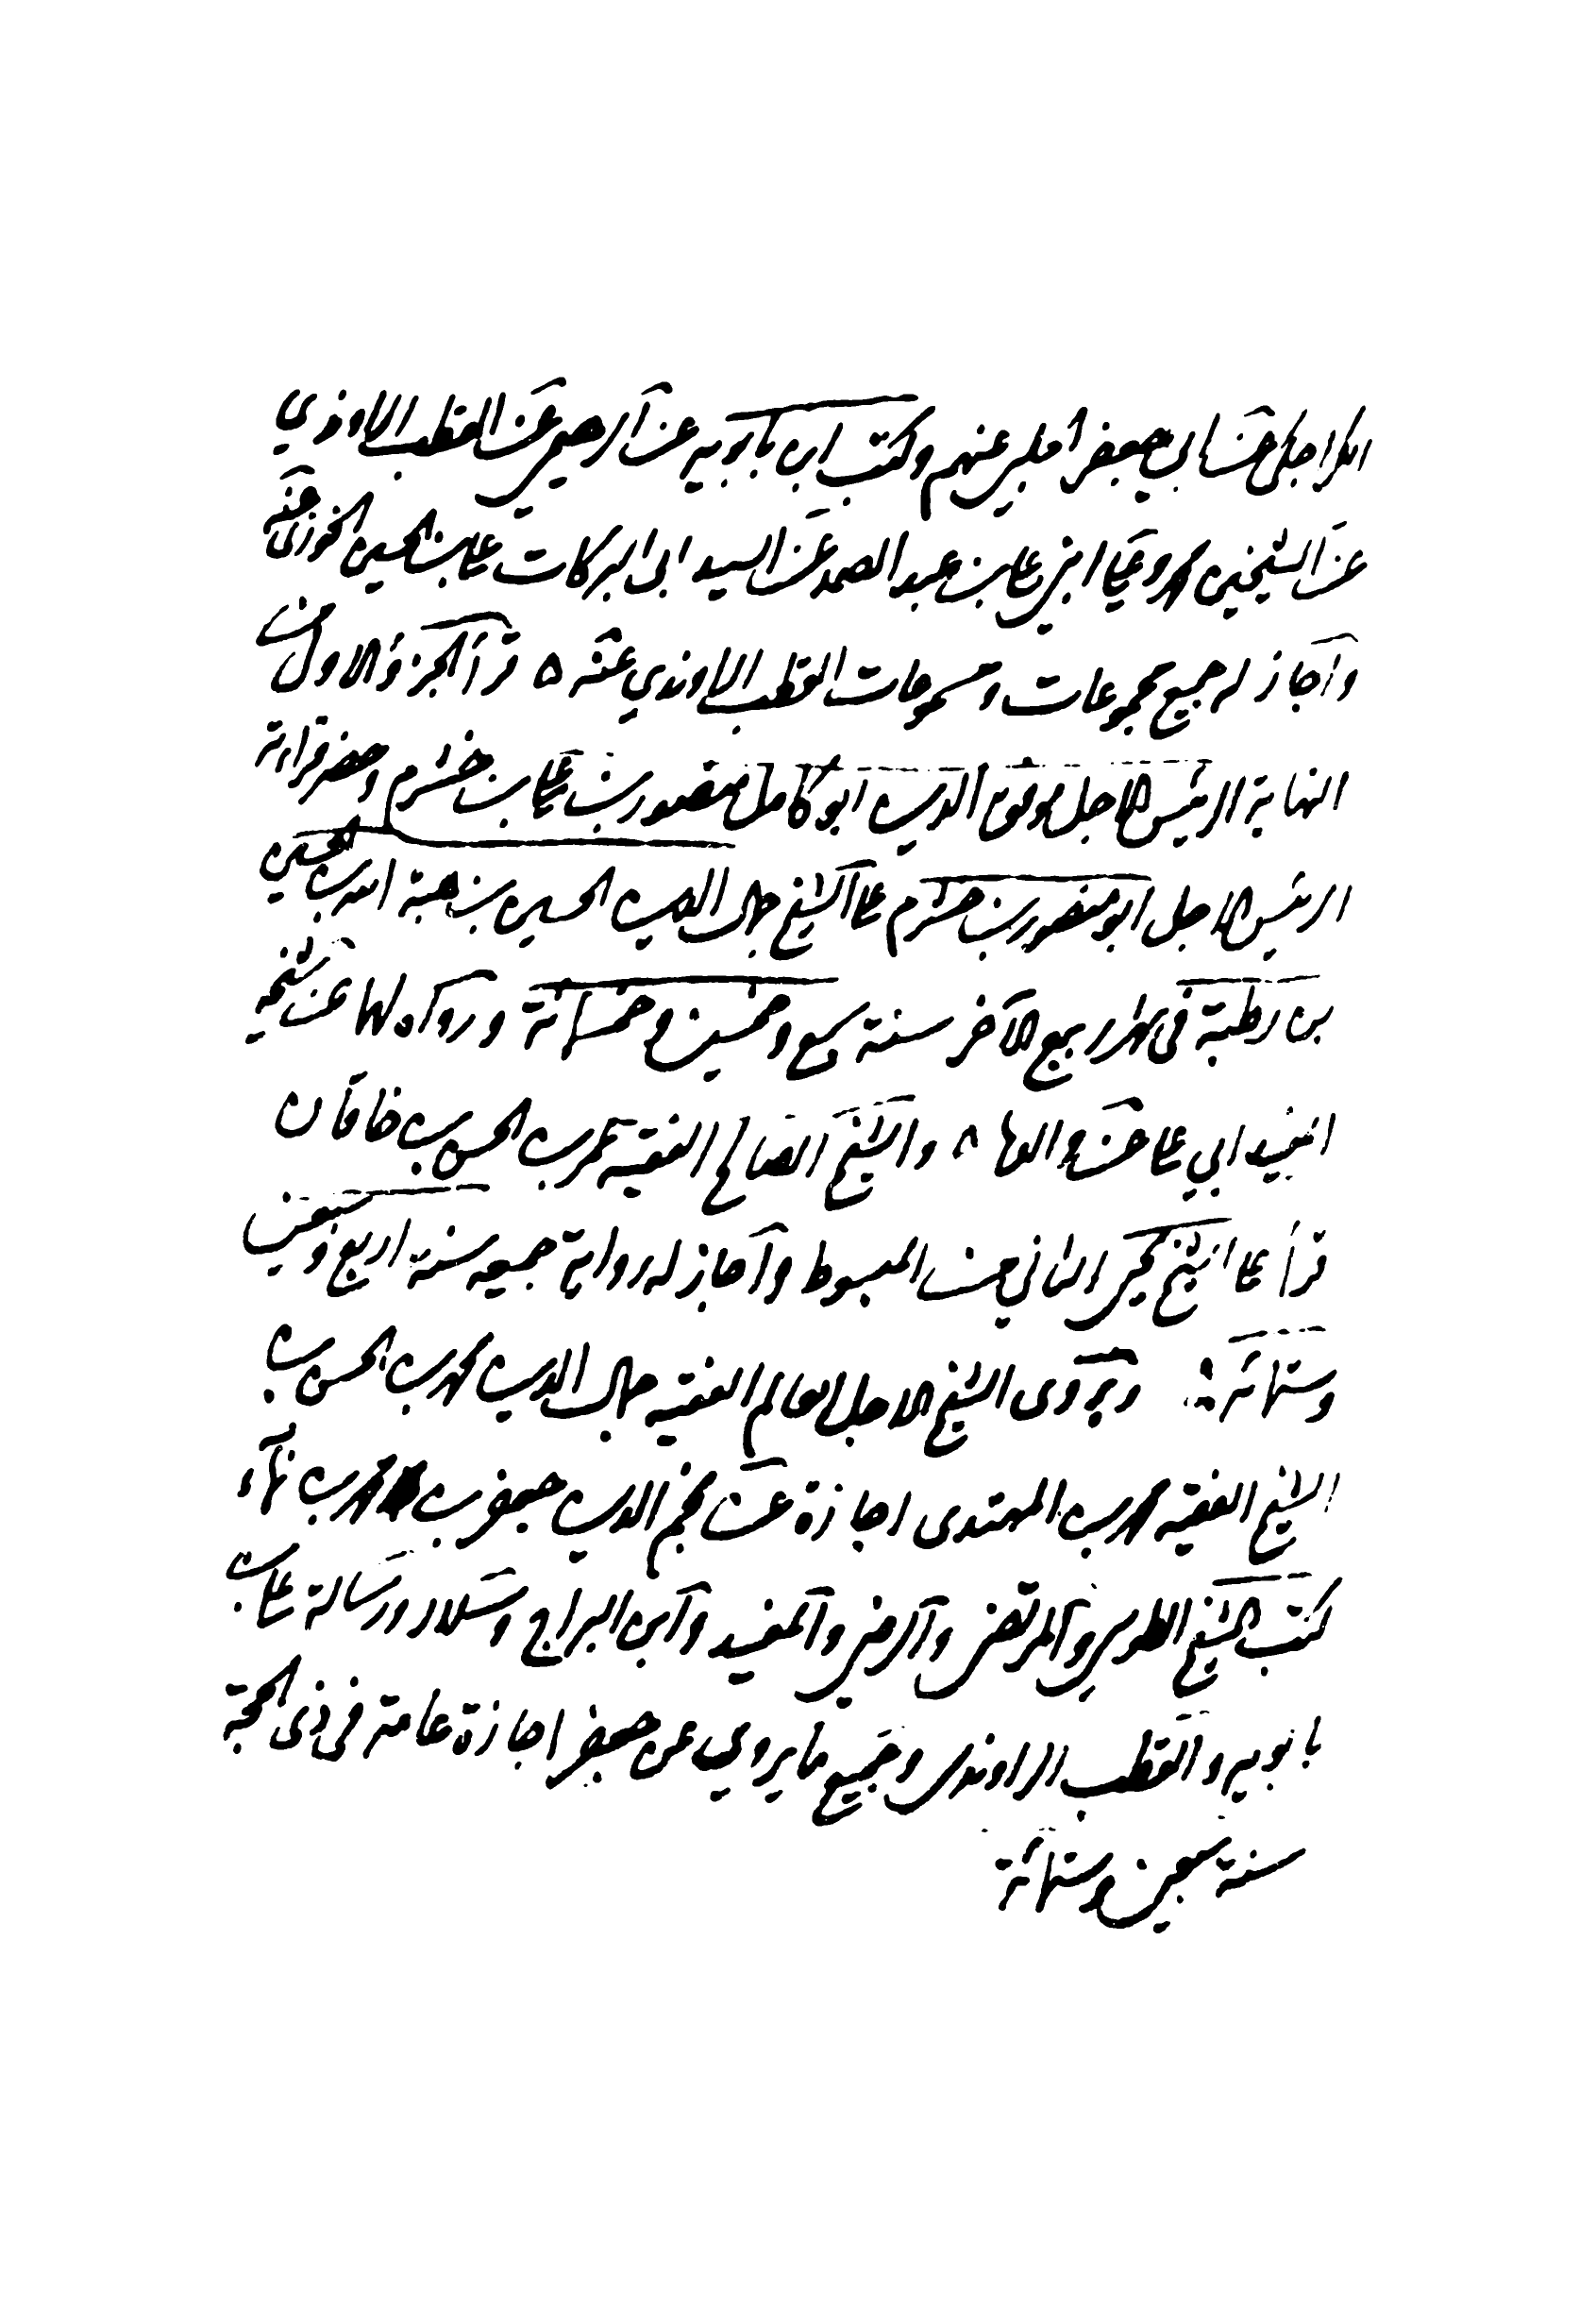 الكراجكي عن ابي جعفر الحلبي عنهم وكتب ابن بابويه عن الرضي عن القطب الراوندي
عن الشيخين محمد وعلي ابني علي بن عبد الصمد عن السيد ابى البركات علي بن الحسين الخوزى عنه
واجاز له جميع مجموعات ومسموعات القطب الراوندي عنه ه قرأ الجزؤ الاول من
النهاية الرئيس الاجل موفق الدين ابو كامل منصور بن علي بن خشرم وحضر قراءته
الرئيس الاجل ابو منصور بن خشرم علي الشيخ جمال الدين الحسين بن هبة الله بن الحسين
بن رطبة فى شهر ربيع الآخر سنة سبع وخمسين وخمسمائة ورواه لهما عن شيخه
المفيد ابي علي عن والده ه والشيخ الصالح الفقيه محمد بن الحسن بن خاقان
قرأ علي الشيخ الثاني من المبسوط واجاز له رواية جميعه سنة اربع وسبعين
وستمائة ه ويروى الشيخ الاجل العالم الفقيه جمال الدين محمد بن الحسن بن
الشيخ الفقيه محمد بن المهتدى اجازة عن نجم الدين جعفر بن محمد بن نما
كتب الشيخ الطوسي والمرتضى والرضي والمفيد وابن البراج وسلار ورسالة علي بن
بابويه والقطب الراوندي وجميع ما يروي عن جعفر اجازة عامة فى ذى الحجة
سنة سبعين وستمائة